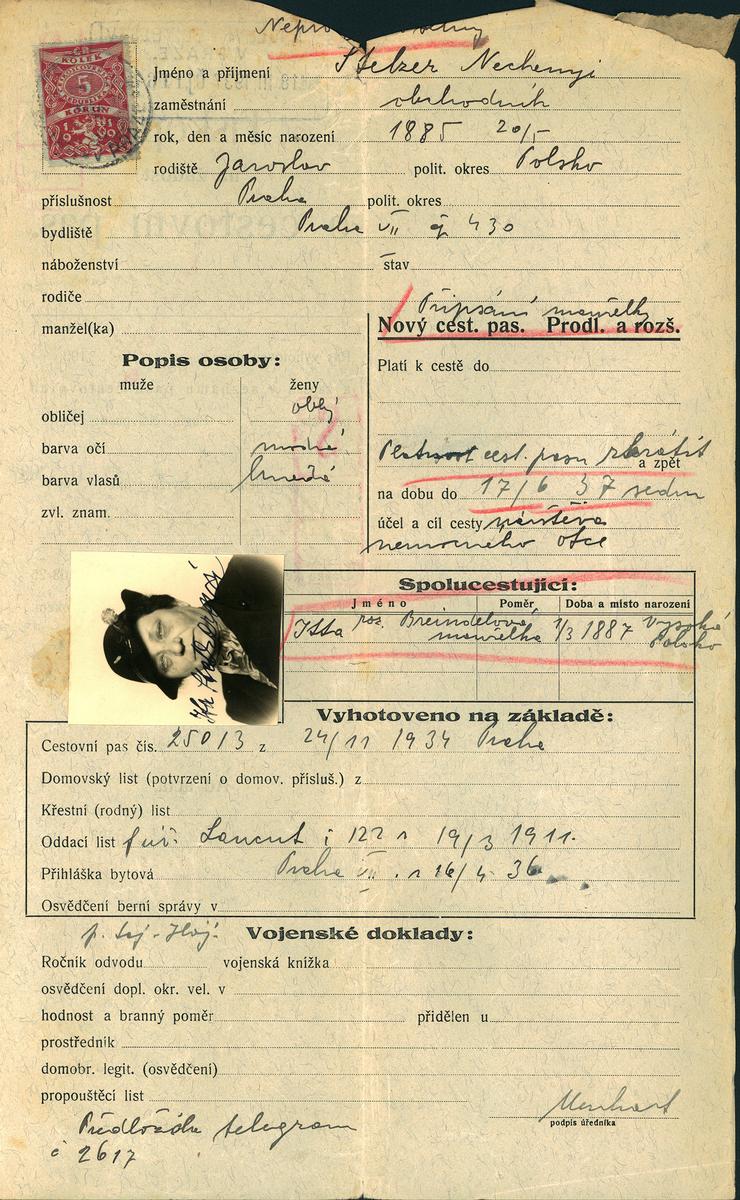 ČR
KOLEK
5
KORUN
Jméno a příjmení Stelzer Nechemja
zaměstnání obchodník
rok, den a měsíc narození 1885 20/5
rodiště Jaroslav polit. okres Polsko
příslušnost Praha polit. okres
bydliště Praha VII čp 430
náboženství stav
rodiče
Připsání manželky
manžel(ka)
Nový cest. pas. Prodl. a rozš.
Popis osoby:
muže ženy
Platí k cestě do
obličej oblý
barva očí modré
barva vlasů hnědé
zvl. znam.
Platnost cest. pasu zkrátit
a zpět
na dobu do 17/6 37
účel a cíl cesty návštěva
nemocného otce
Spolucestující:
Jméno Poměr Doba a místo narození
Itta roz. Breindelová manželka 1/3 1887 Vysoká Polsko
Vyhotoveno na základě:
Cestovní pas čís. 25013 z 24/11 1934 Praha
Domovský list (potvrzení o domov. přísluš.) z
Křestní (rodný) list
Oddací list Lancut č 122 z 19/3 1911.
Přihláška bytová Praha VII. z 16/4 36
Osvědčení berní správy v
Vojenské doklady:
Ročník odvodu vojenská knížka
osvědčení dopl. okr. vel. v
hodnost a branný poměr přidělen u
prostředník
domobr. legit. (osvědčení)
propouštěcí list
podpis úředníka
Předložila telegram
č 2617